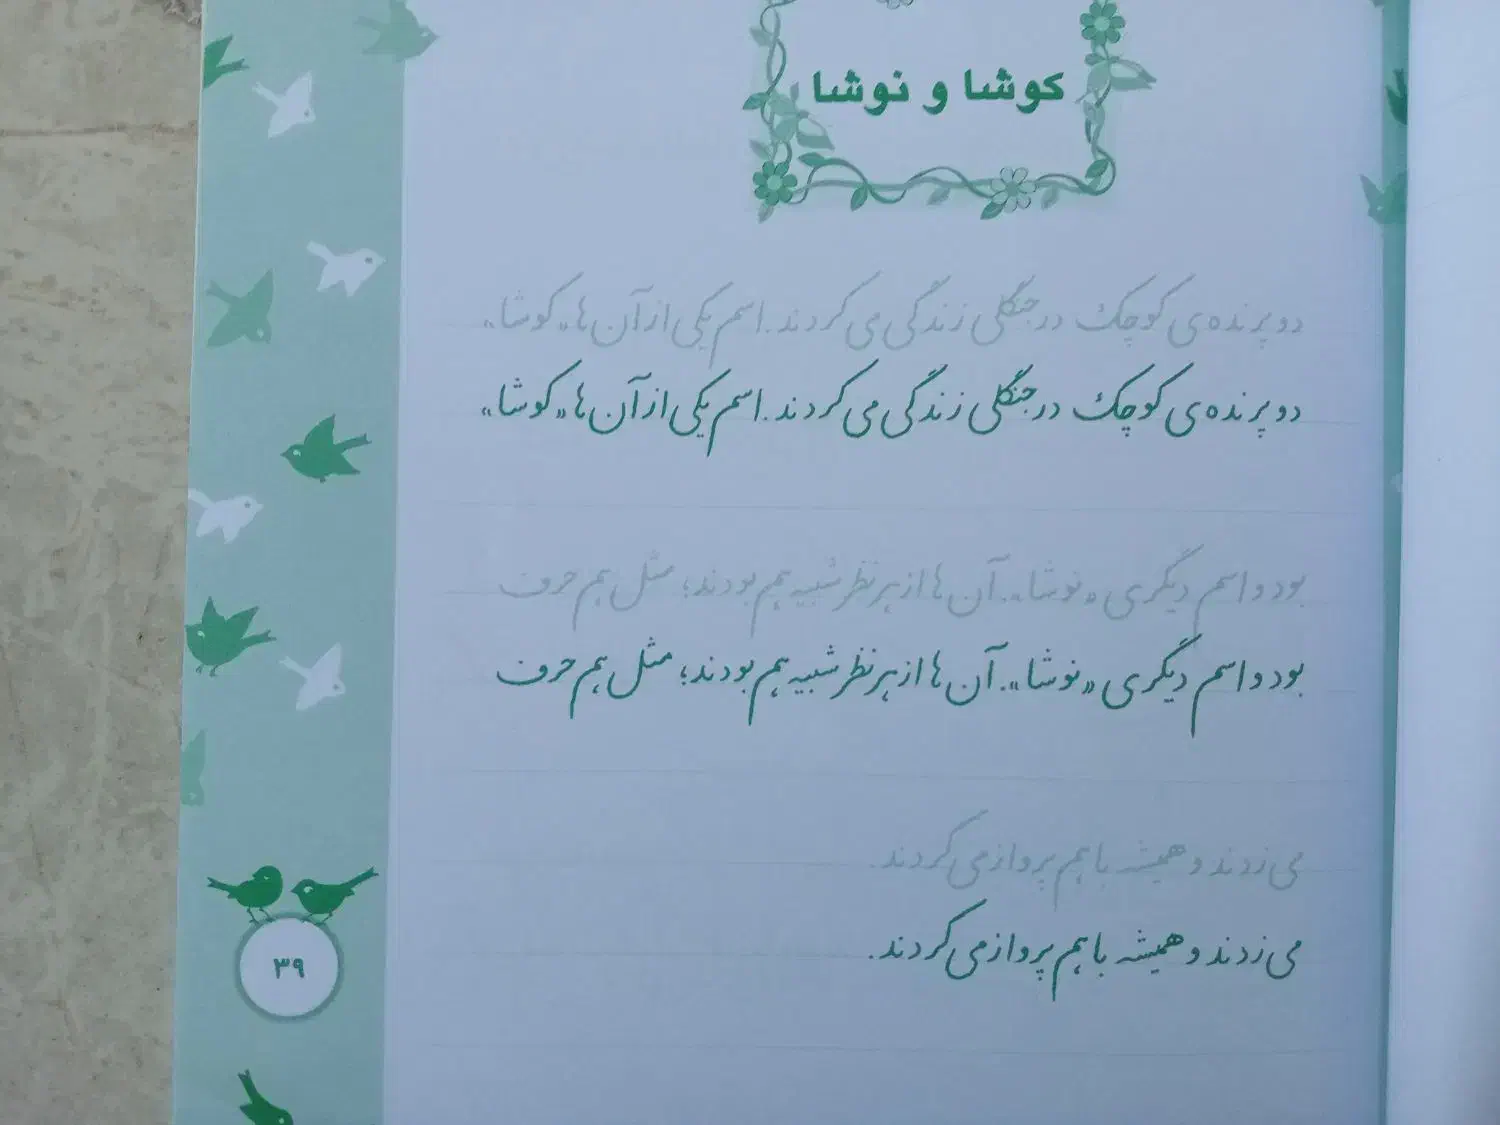 کوشا و نوشا
دو پرنده‌ی کوچک در جنگلی زندگی می‌کردند. اسم یکی از آن ها «کوشا»
دو پرنده‌ی کوچک در جنگلی زندگی می‌کردند. اسم یکی از آن ها «کوشا»
بود و اسم دیگری «نوشا». آن ها از هر نظر شبیه هم بودند؛ مثل هم حرف
بود و اسم دیگری «نوشا». آن ها از هر نظر شبیه هم بودند؛ مثل هم حرف
می‌زدند و همیشه با هم پرواز می‌کردند.
می‌زدند و همیشه با هم پرواز می‌کردند.
۳۹